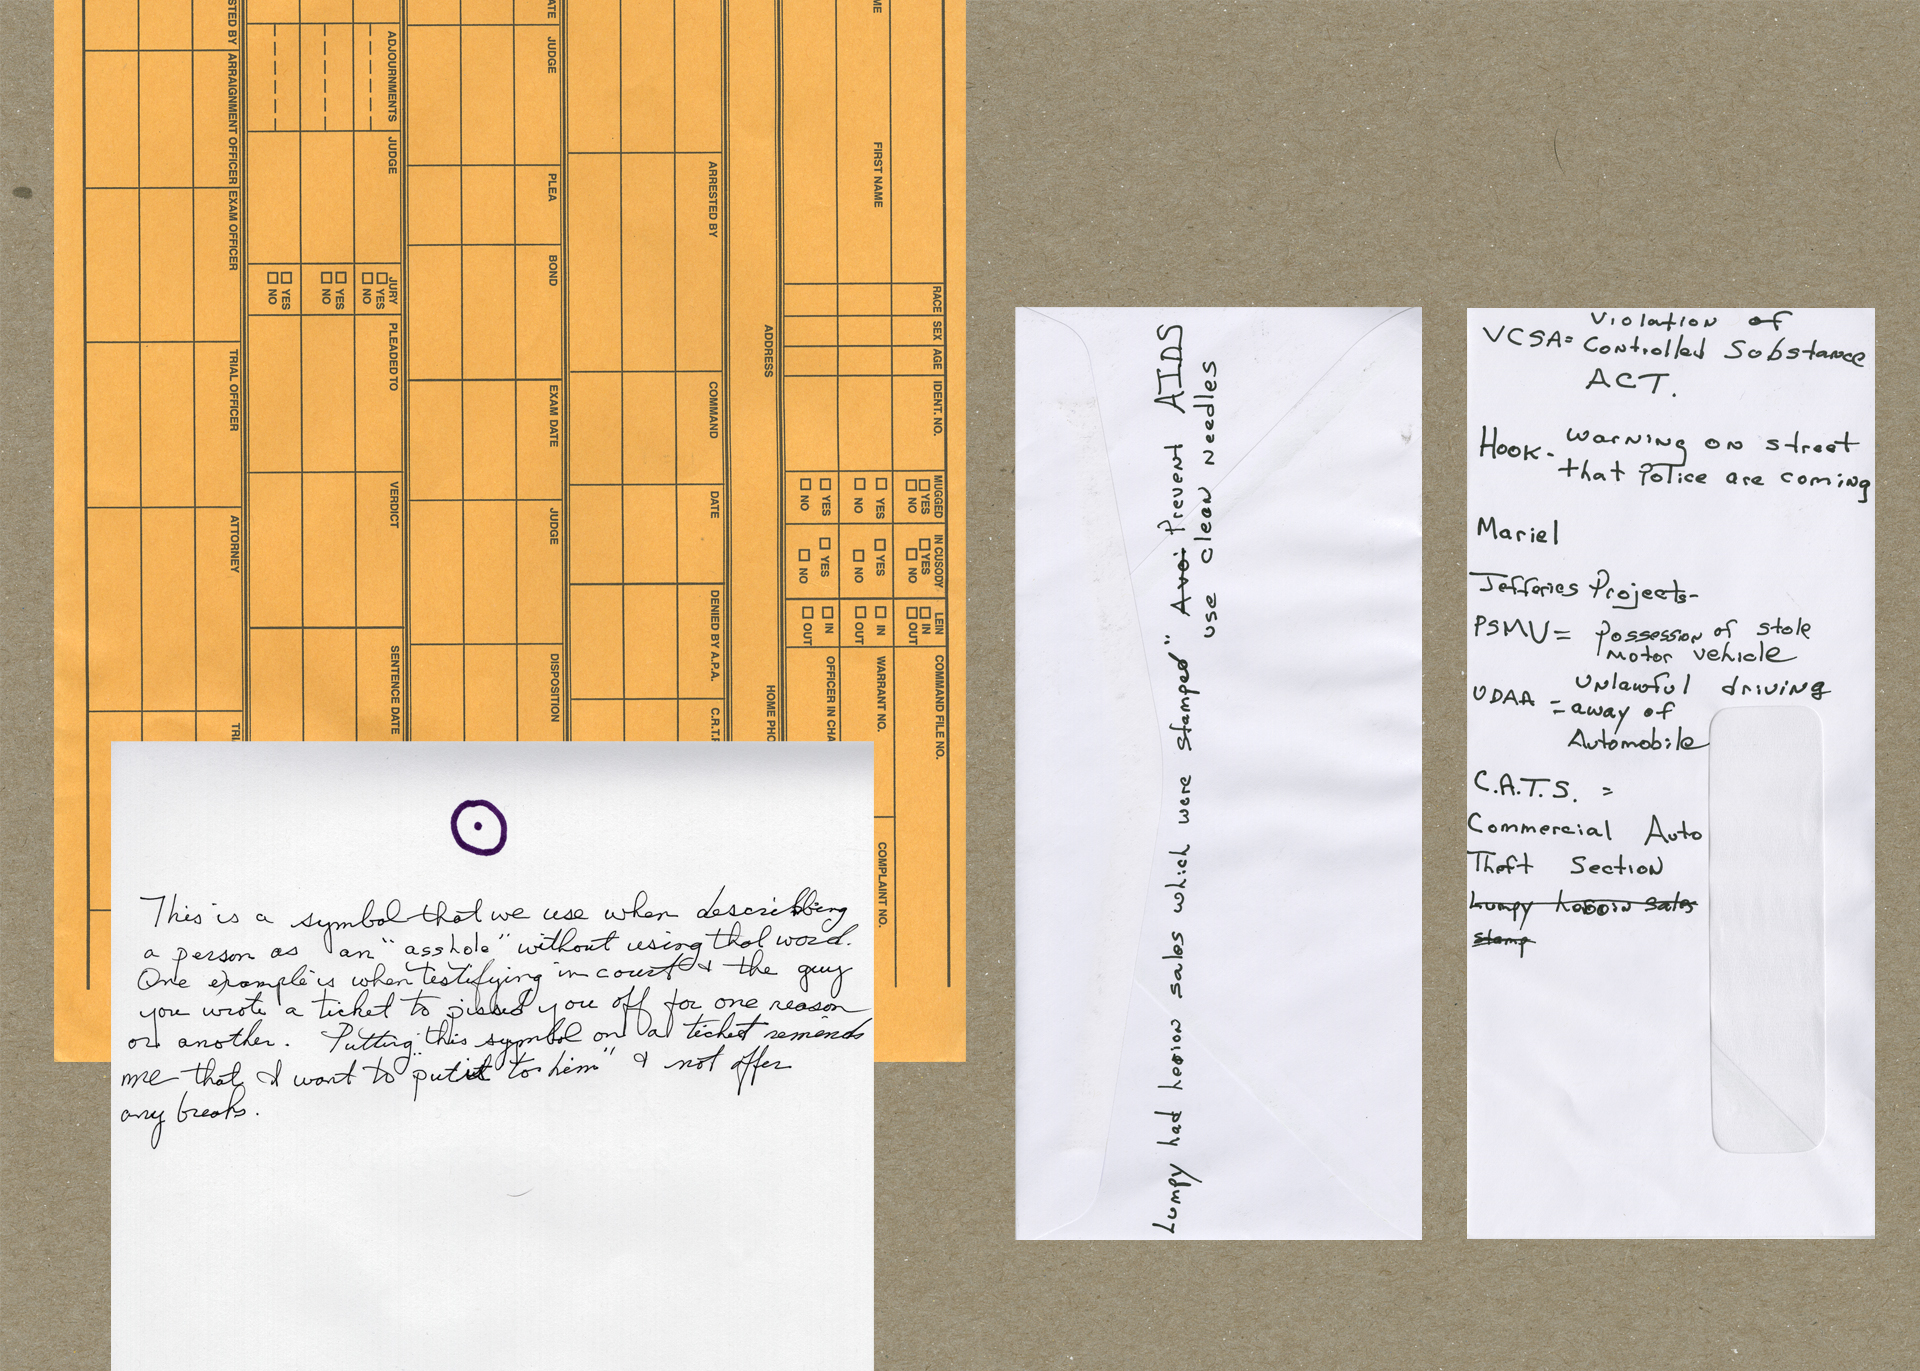 MUGGED
IN CUSTODY
LEIN
COMMAND FILE NO.
RACE
SEX
AGE
IDENT. NO.
YES
NO
YES
NO
IN
OUT
FIRST NAME
YES
NO
YES
NO
IN
OUT
WARRANT NO.
COMPLAINT NO.
YES
NO
YES
NO
IN
OUT
OFFICER IN CHA
ADDRESS
HOME PHO
ARRESTED BY
COMMAND
DATE
DENIED BY A.P.A.
JUDGE
PLEA
BOND
EXAM DATE
JUDGE
DISPOSITION
ADJOURNMENTS
JUDGE
JURY
YES
NO
YES
NO
YES
NO
PLEADED TO
VERDICT
SENTENCE DATE
STED BY
ARRAIGNMENT OFFICER
EXAM OFFICER
TRIAL OFFICER
ATTORNEY
This is a symbol that we use when describbing
a person as an "asshole" without using that word.
One example is when testifying in court & the guy
you wrote a ticket to pissed you off for one reason
or another. Putting this symbol on a ticket reminds
me that I want to "put it to him" & not offer
any breaks.
Lumpy had heroin sales which were stamped" Avoi Prevent AIDS
use clean needles
Violation of
VCSA= Controlled Substance
ACT.
Hook- warning on street
that Police are coming
Mariel
Jefferies Projects-
PSMV= Possession of stole
motor vehicle
UDAA = Unlawful driving
away of
Automobile
C.A.T.S. =
Commercial Auto
Theft Section
Lumpy heroin sales
stamp